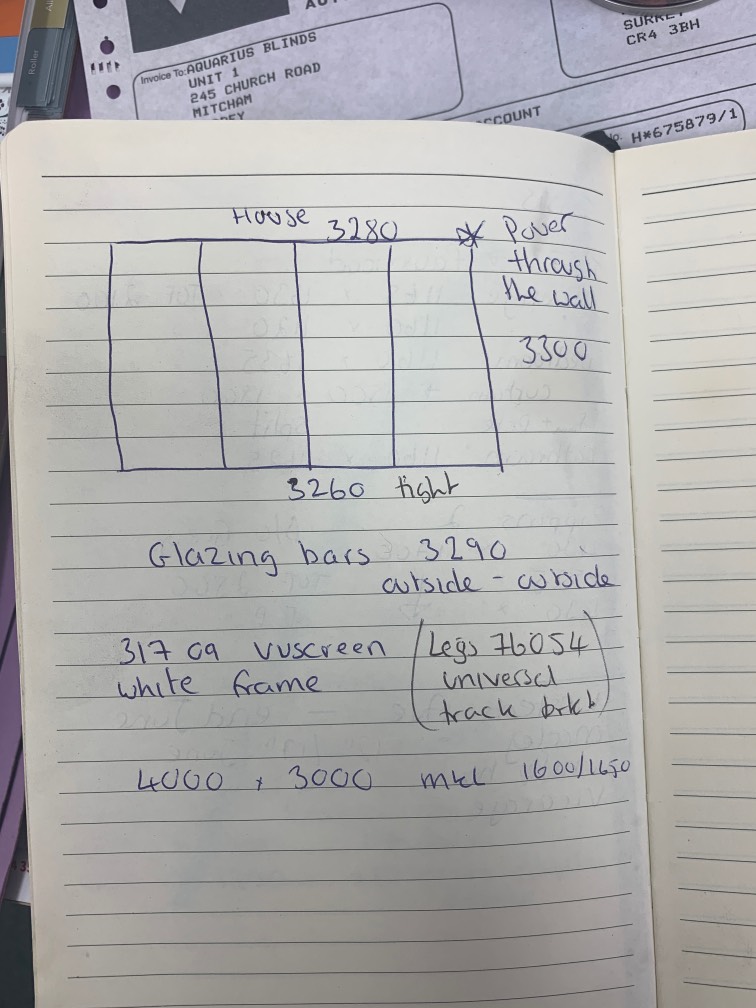 Roller
AU
Invoice To: AQUARIUS BLINDS
UNIT 1
245 CHURCH ROAD
MITCHAM
SURREY
CR4 3BH
ACCOUNT
No. H*675879/1
House 3280 Power
through
the wall
3300
3260 tight
Glazing bars 3290
outside - outside
317 09 vuscreen
white frame
(Legs 76054
universal
track brkt)
4000 x 3000 mkl 1600/1650